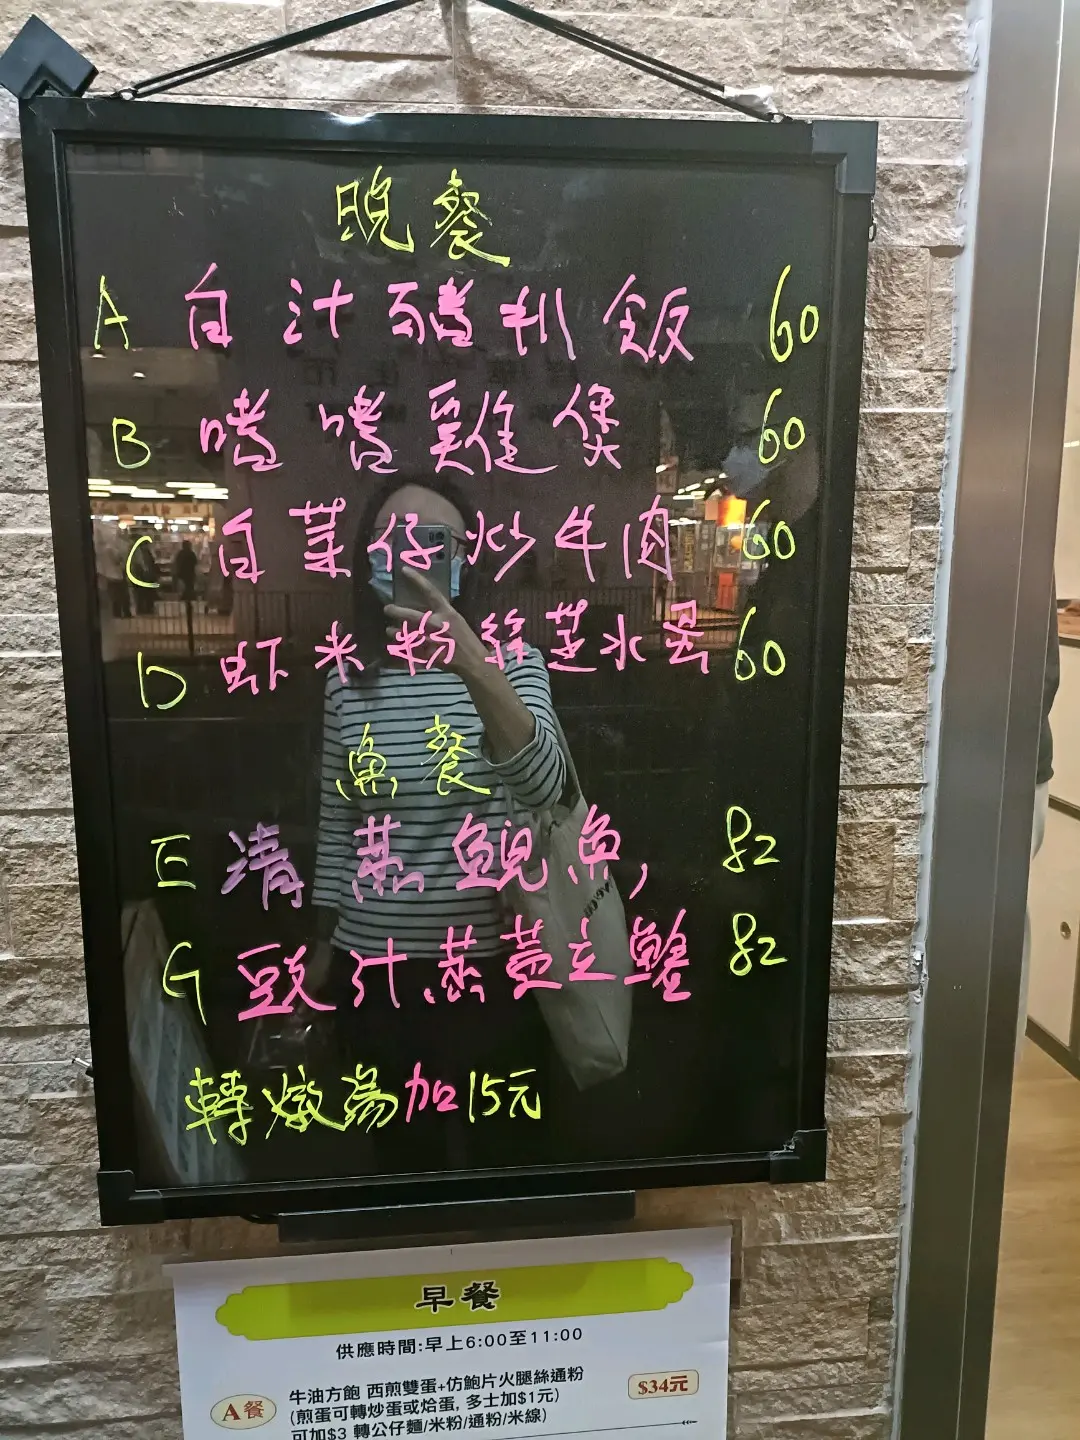 晚餐
A 白汁豬扒飯 60
B 嗜嗜雞煲 60
C 白菜仔炒牛肉 60
D 虾米粉絲蒸水蛋 60
魚餐
E 清蒸鯇魚 82
G 豉汁蒸黃立鱠 82
轉燉湯加15元
早餐
供應時間:早上6:00至11:00
A餐 牛油方飽 西煎雙蛋+仿鮑片火腿絲通粉 $34元
(煎蛋可轉炒蛋或烚蛋, 多士加$1元)
可加$3 轉公仔麵/米粉/通粉/米線)